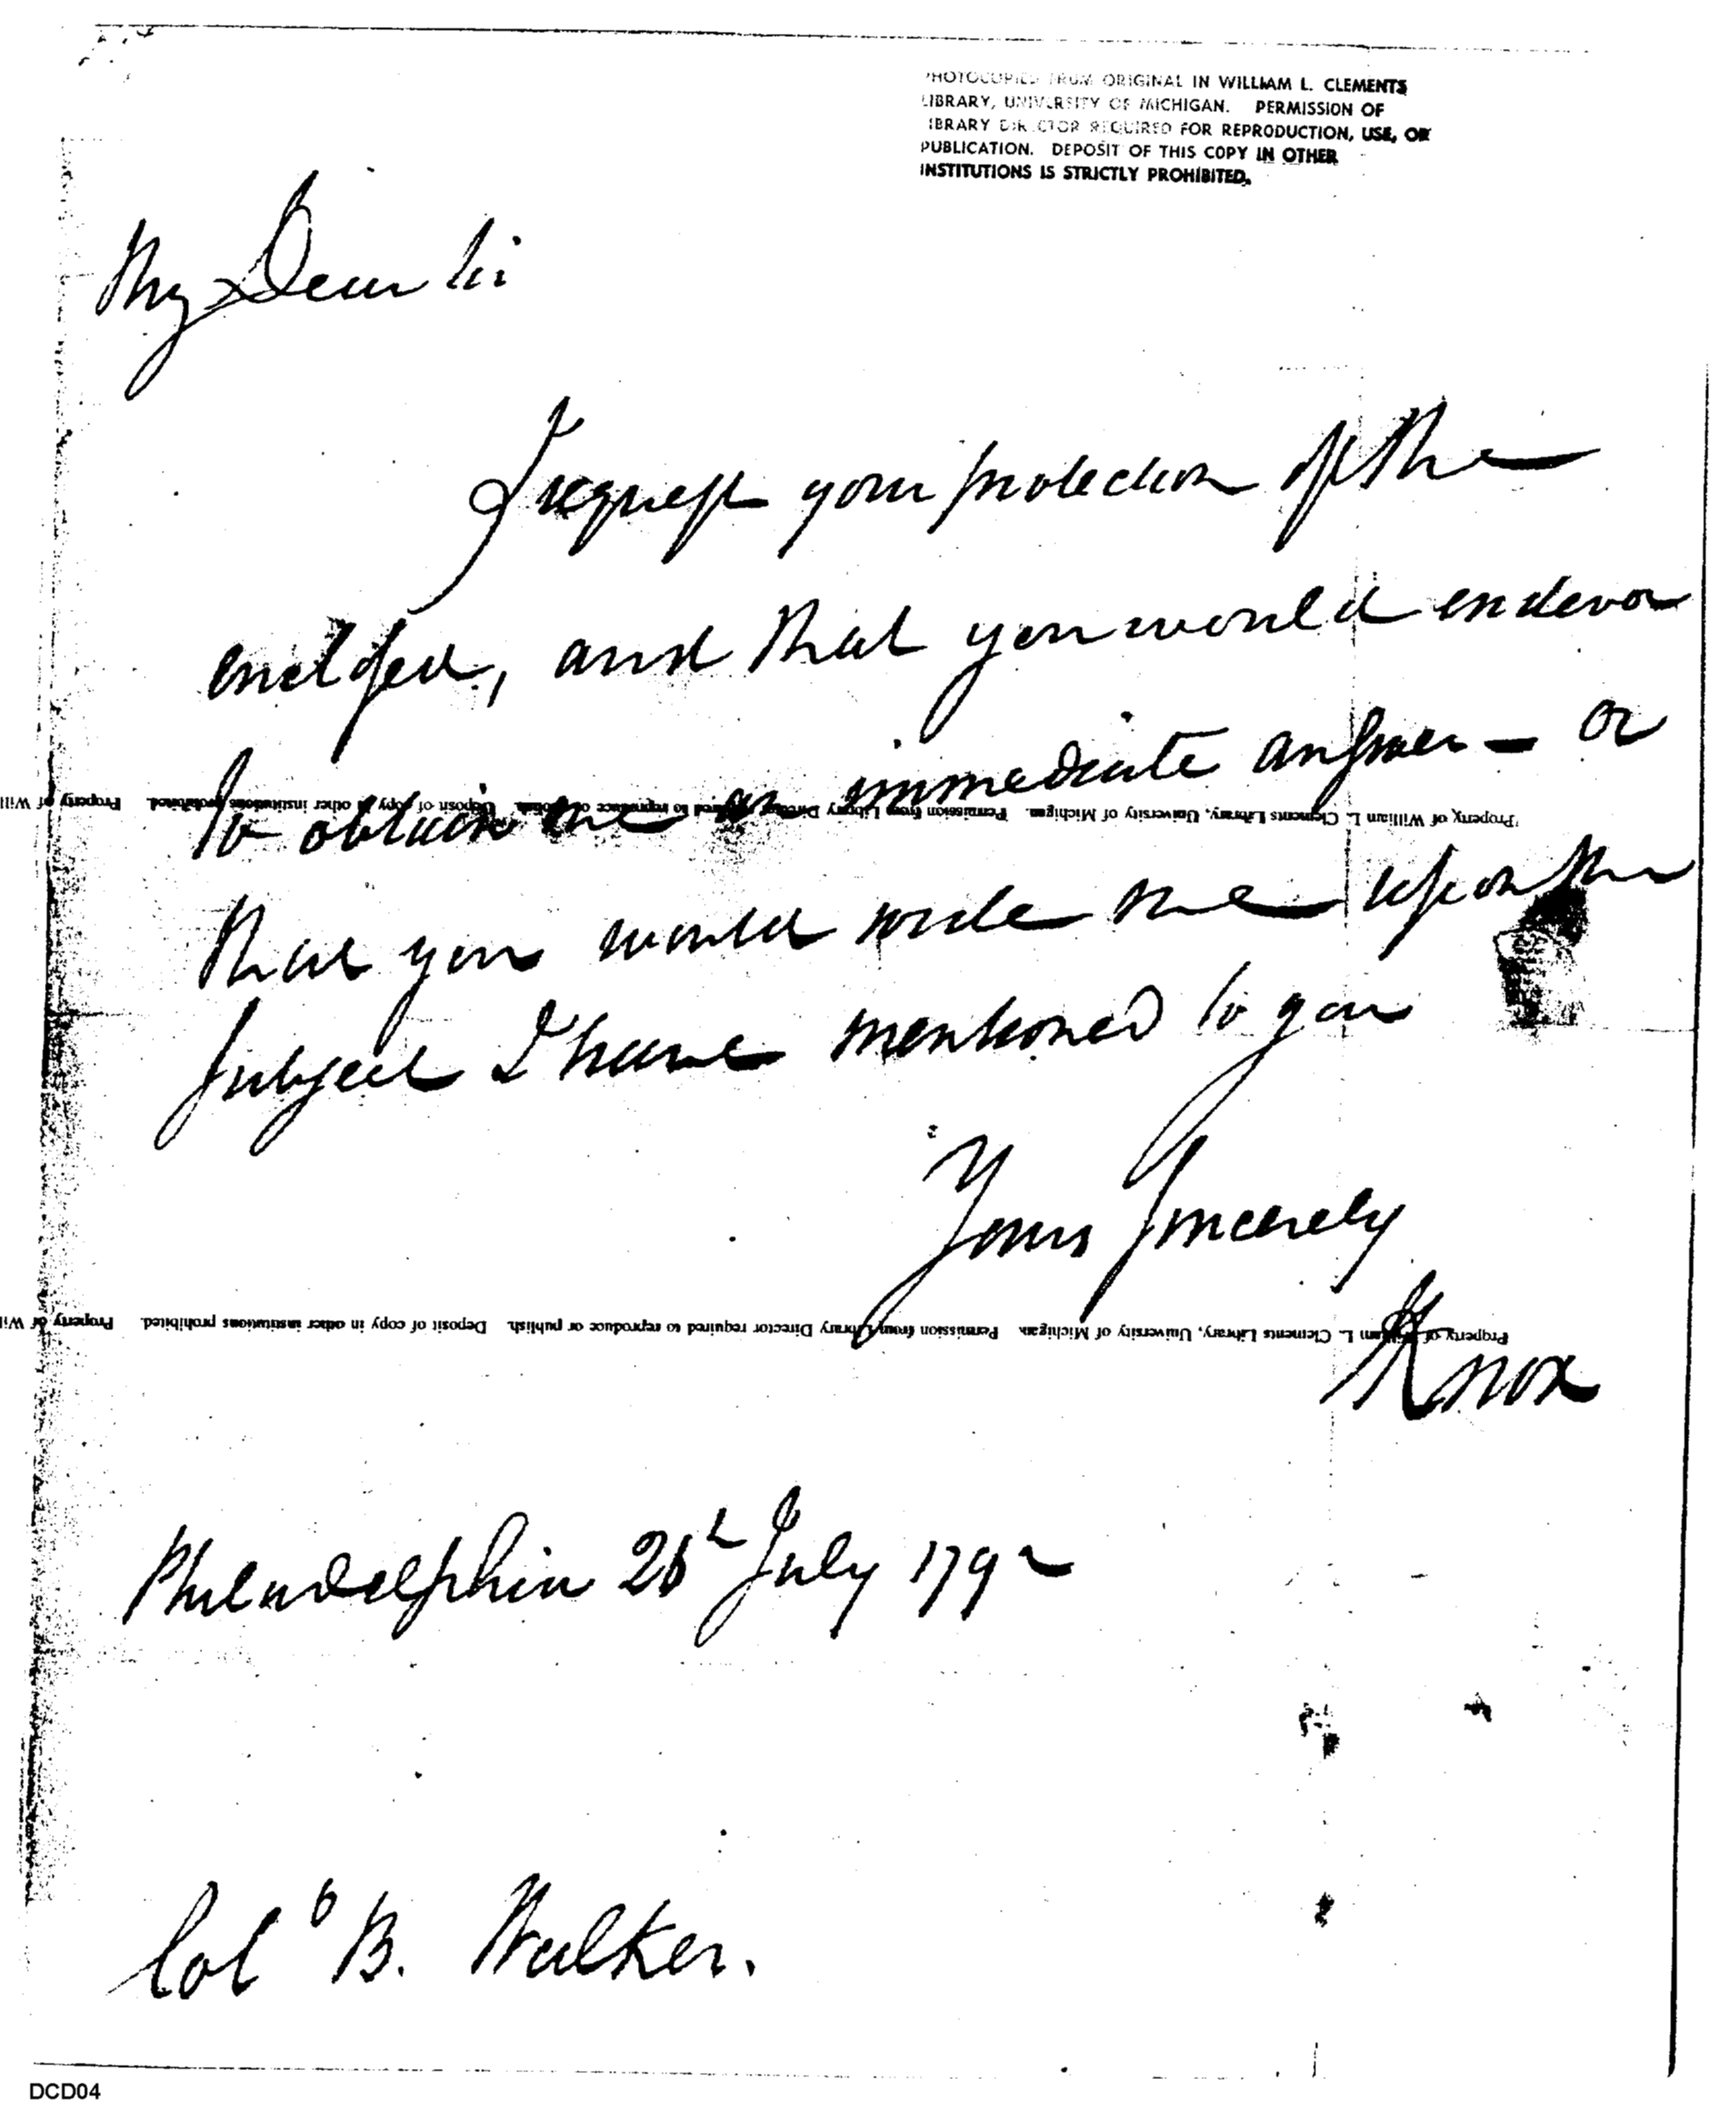 PHOTOCOPIED FROM ORIGINAL IN WILLIAM L. CLEMENTS
LIBRARY, UNIVERSITY OF MICHIGAN. PERMISSION OF
LIBRARY DIRECTOR REQUIRED FOR REPRODUCTION, USE, OR
PUBLICATION. DEPOSIT OF THIS COPY IN OTHER
INSTITUTIONS IS STRICTLY PROHIBITED.
My Dear Sir
I request your protection of the
enclosed, and that you would endevor
to obtain me an immediate answer — or
Property of William L. Clements Library, University of Michigan. Permission from Library Director required to reproduce or publish. Deposit of copy in other institutions prohibited. Property of Will
that you would write me upon the
subject I have mentioned to you
Yours Sincerely
Property of William L. Clements Library, University of Michigan. Permission from Library Director required to reproduce or publish. Deposit of copy in other institutions prohibited. Property of Wil
Knox
Philadelphia July 1792
Colo B. Walker.
DCD04